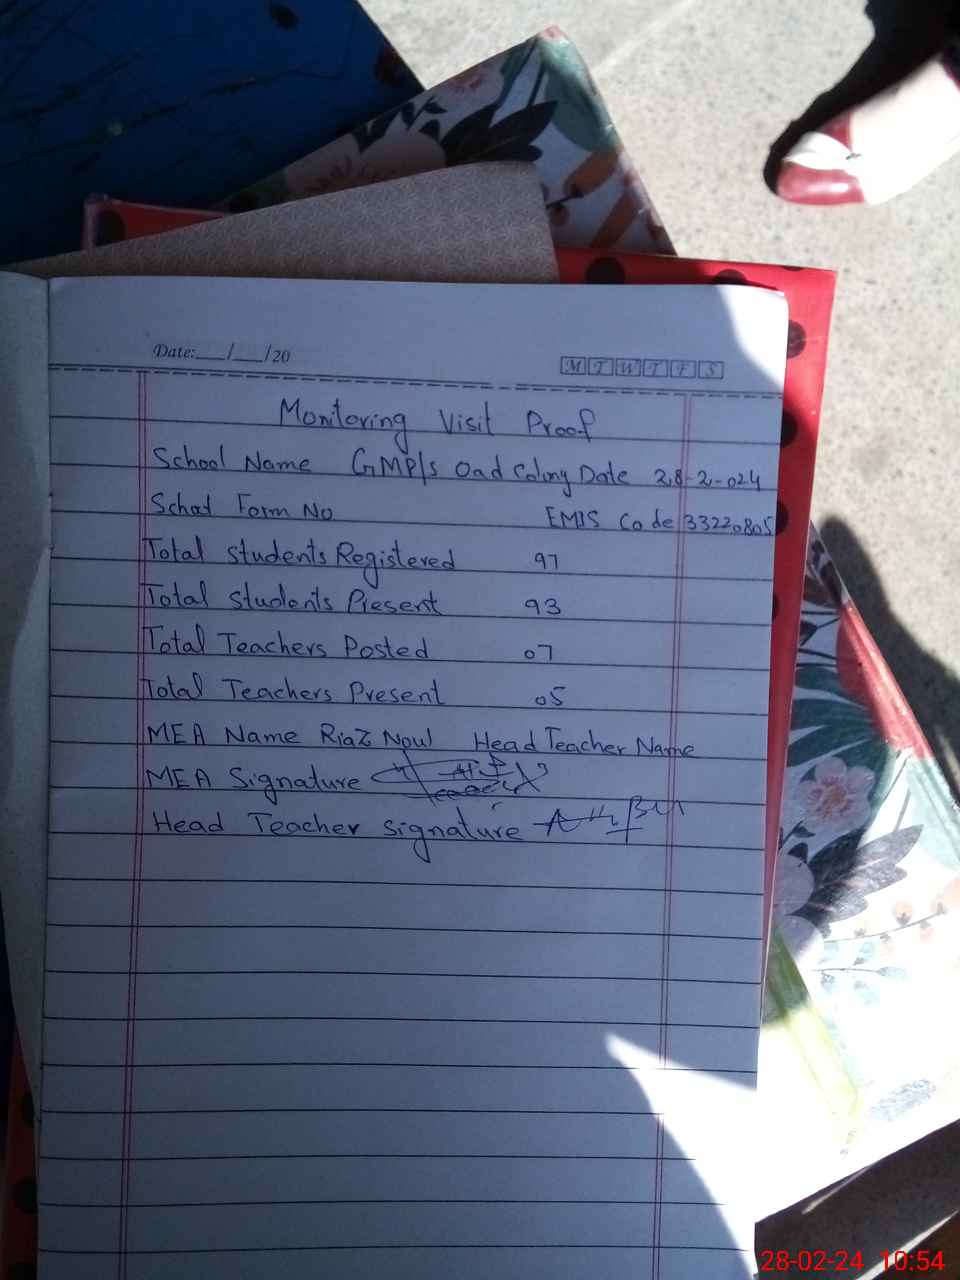 Date:___/___/20
M T W T F S
Monitoring Visit Proof
School Name GMP/S Oad Colony Date 28-2-024
School Form No EMIS Code 33220805
Total Students Registered 97
Total Students Present 93
Total Teachers Posted 07
Total Teachers Present 05
MEA Name Riaz Noul Head Teacher Name
MEA Signature
Head Teacher Signature
28-02-24 10:54